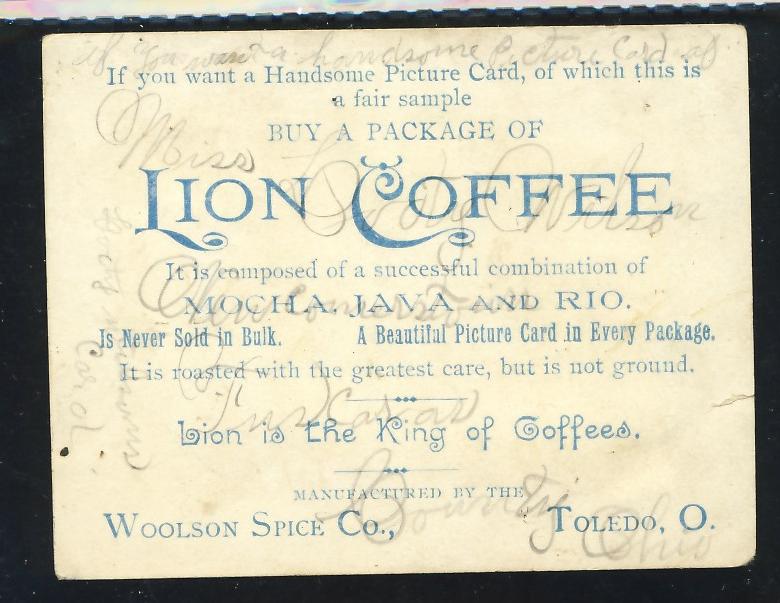 If you want a handsome Picture Card of
If you want a Handsome Picture Card, of which this is
a fair sample
BUY A PACKAGE OF
Miss
LION COFFEE
Wilson
It is composed of a successful combination of
New Comerstown
MOCHA, JAVA AND RIO.
Is Never Sold in Bulk. A Beautiful Picture Card in Every Package.
It is roasted with the greatest care, but is not ground.
Tuscaras
Lion is the King of Coffees.
County
MANUFACTURED BY THE
WOOLSON SPICE CO., TOLEDO, O.
Ohio
Card